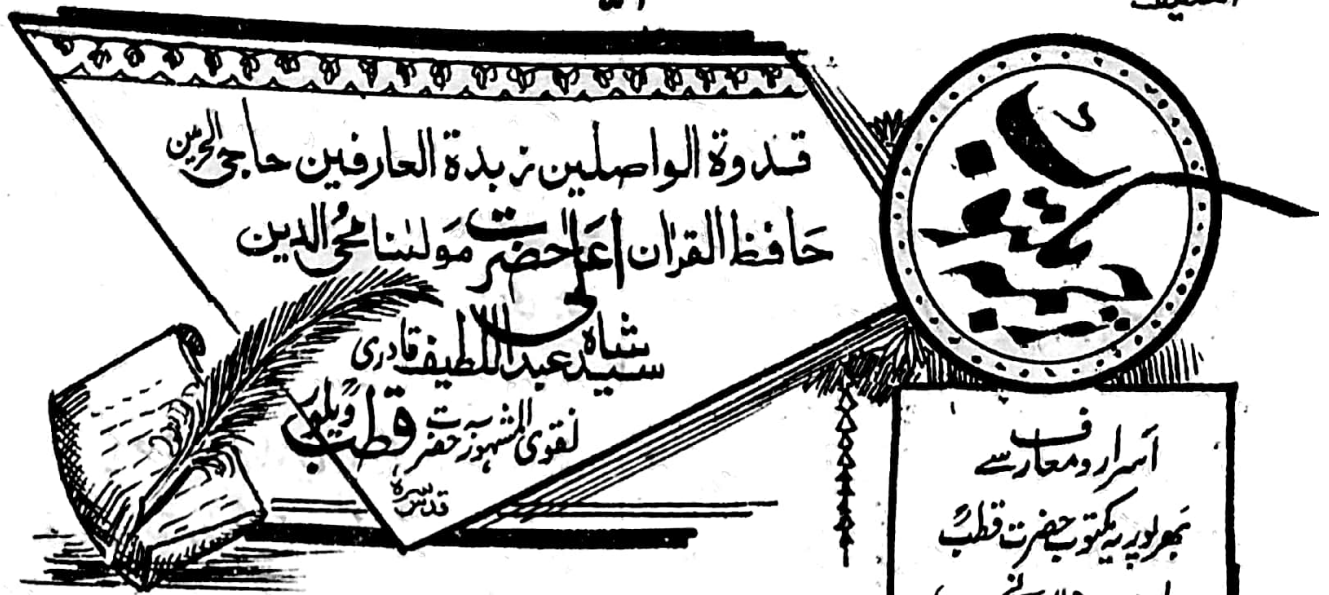 قدوة الواصلين زبدة العارفين حاجى الحرمين
حافظ القران اعلى الحضرت مولٰنا محى الدين
سيد شاه عبد اللطيف قادرى
نقوى المشهور به حضرت قطب ويلورؒ
قدس سره
اسرار و معارف سے
بھرپور یہ مکتوب حضرت قطبؒ